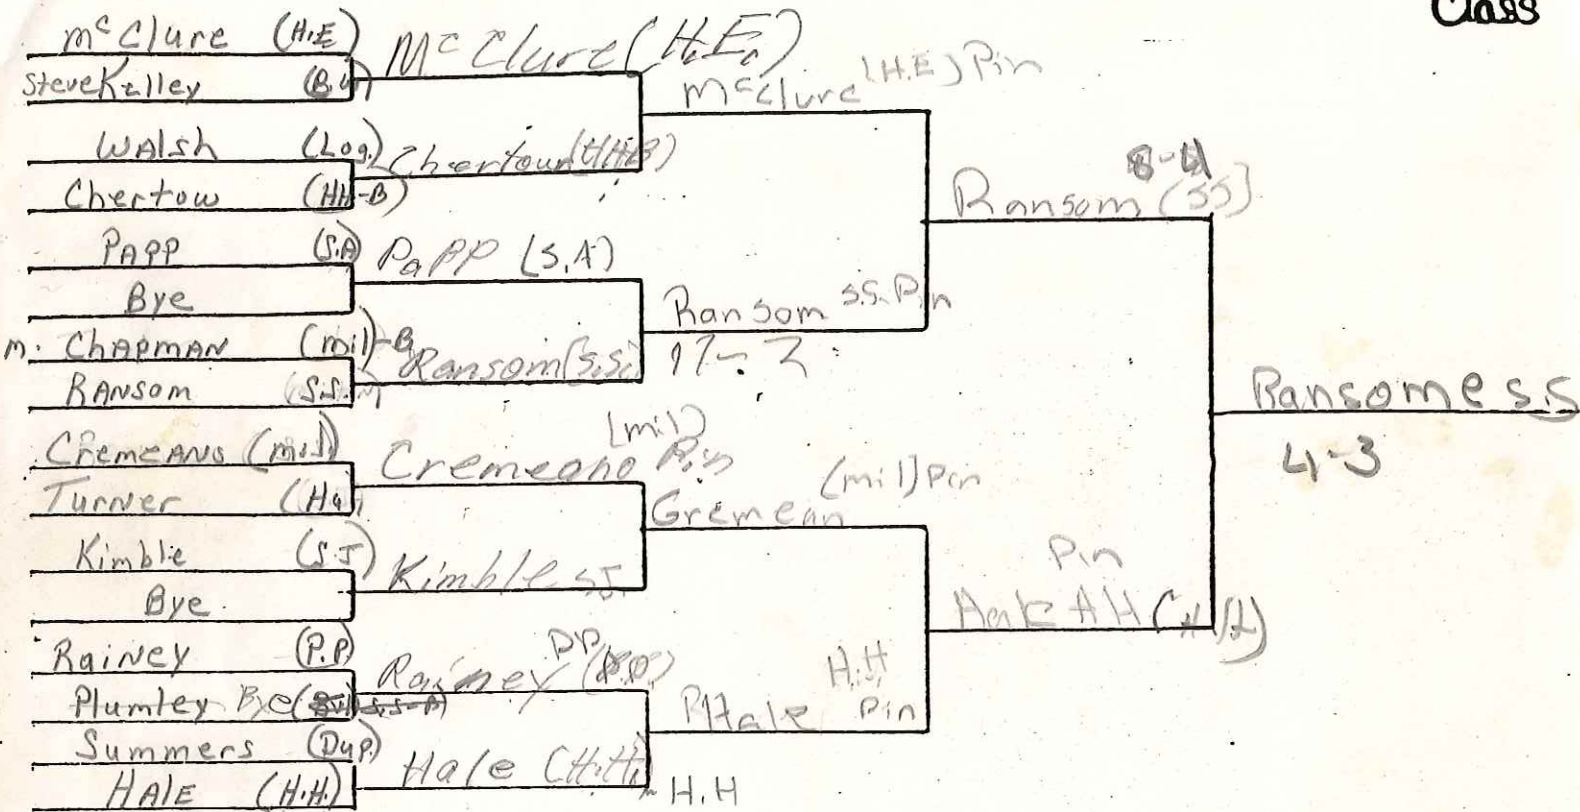 Class
McClure (H.E)
Steve Kelley (B.W)
Walsh (Log.)
Chertow (HH-B)
Papp (S.A)
Bye
M. Chapman (Mil)-B
Ransom (S.S.
Cremeans (Mil)
Turner (Ha
Kimble (S.J)
Bye
Rainey (P.P)
Plumley Bye
Summers (Dup.)
Hale (H.H.)
McClure (H.E.)
Chertow (HH-B)
Papp (S.A)
Ransom (S.S.)
(mil)
Cremeans Pin
Kimble S.J.
Rainey PP
Hale (H.H.)
McClure (H.E) Pin
Ransom S.S. Pin
17-2
Gremean (mil) Pin
Hale H.H Pin
H.H
8-4
Ransom (SS)
Pin
HH
Ransome S.S
4-3